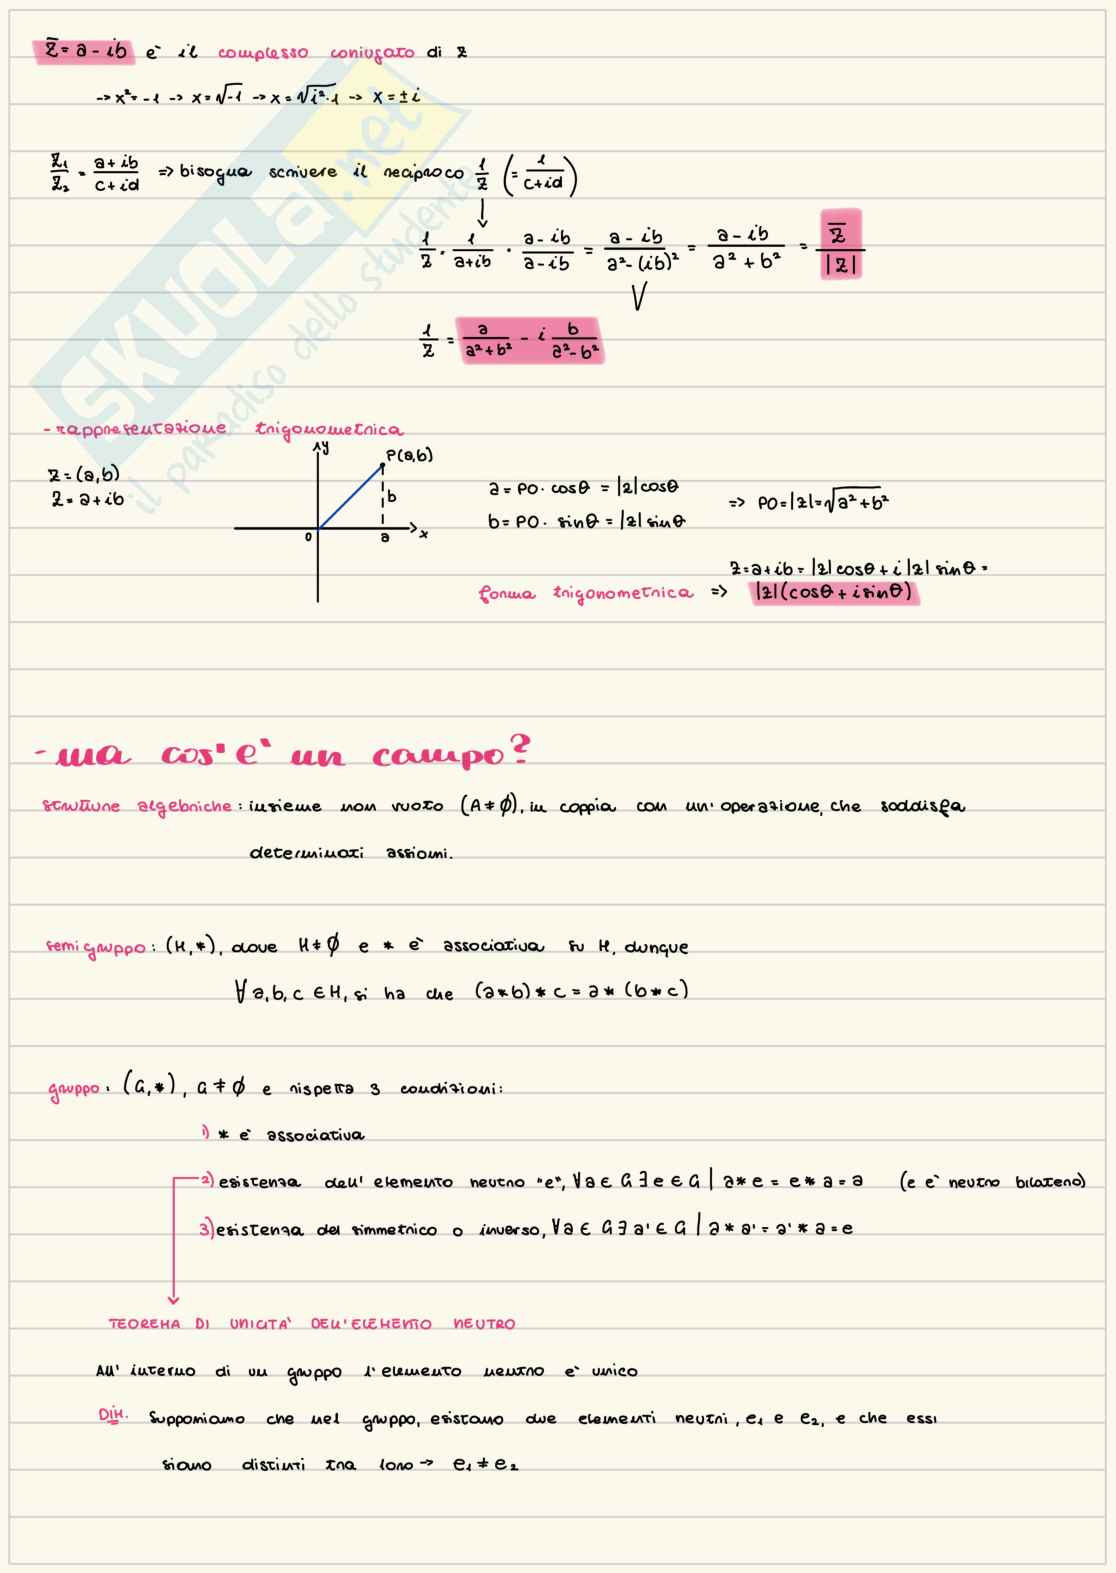 z̄ = a - ib è il complesso coniugato di z
-> x² = -1 -> x = √-1 -> x = √i²·1 -> x = ± i
z₁/z₂ = a+ib/c+id => bisogna scrivere il reciproco 1/z (= 1/c+id)
1/z · 1/a+ib · a-ib/a-ib = a-ib/a²-(ib)² = a-ib/a²+b² = z̄/|z|
1/z = a/a²+b² - i b/a²-b²
- rappresentazione trigonometrica
y
P(a,b)
z = (a,b)
z = a+ib
b
0
a
x
a = PO · cosθ = |z|cosθ
b = PO · sinθ = |z| sinθ
=> PO = |z| = √a²+b²
z = a+ib = |z| cosθ + i |z| sinθ =
forma trigonometrica => |z|(cosθ + i sinθ)
- ma cos'è un campo?
strutture algebriche: insieme non vuoto (A ≠ ∅), in coppia con un'operazione, che soddisfa
determinati assiomi.
semigruppo: (H,*), dove H ≠ ∅ e * è associativa su H, dunque
∀ a,b,c ∈ H, si ha che (a*b) * c = a * (b * c)
gruppo: (G,*), G ≠ ∅ e rispetta 3 condizioni:
1) * è associativa
2) esistenza dell'elemento neutro "e", ∀a ∈ G ∃ e ∈ G | a * e = e * a = a (e è neutro bilatero)
3) esistenza del simmetrico o inverso, ∀a ∈ G ∃ a' ∈ G | a * a' = a' * a = e
TEOREMA DI UNICITA' DELL'ELEMENTO NEUTRO
All'interno di un gruppo l'elemento neutro è unico
DIM. Supponiamo che nel gruppo, esistano due elementi neutri, e₁ e e₂, e che essi
siano distinti tra loro -> e₁ ≠ e₂
SKUOLA.net
il paradiso dello studente